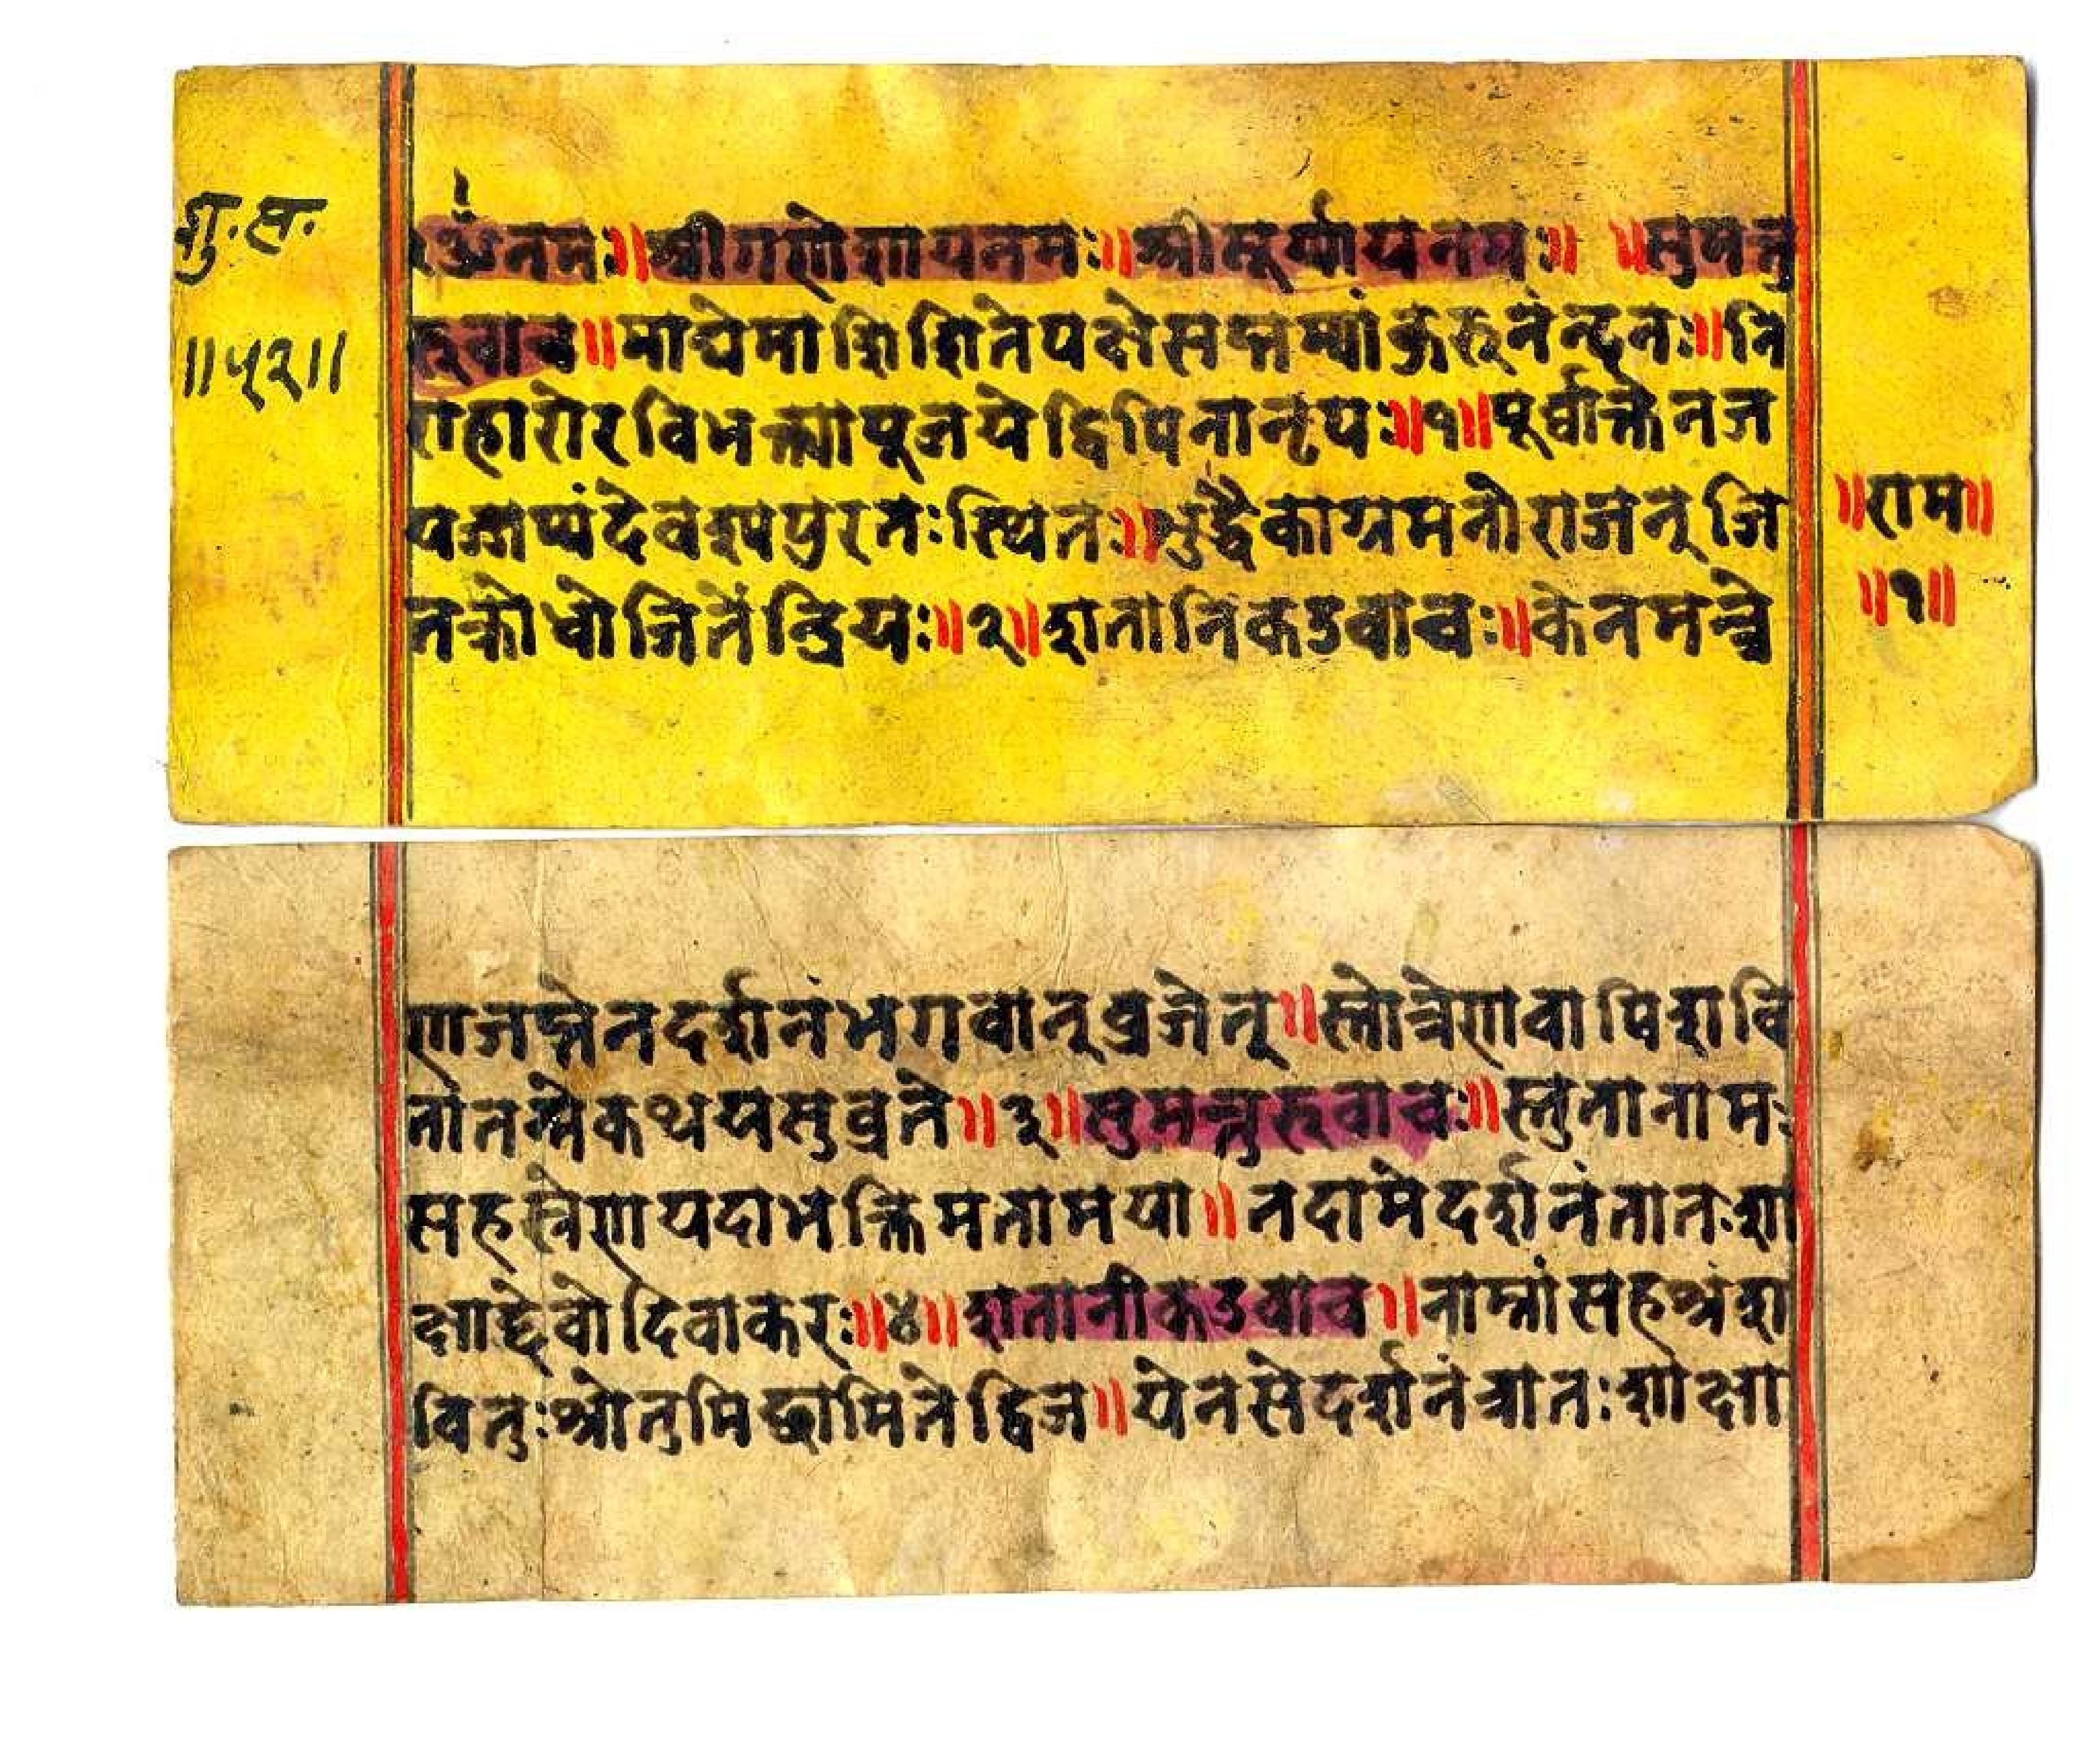 शु.स.
॥५२॥
ॐनमः॥श्रीगणेशायनमः॥श्रीसूर्य्यायनमः॥ ॥सुमन्तु
रूवाच॥माघेमाशिशितेपक्षेसप्तम्यांकुरूनन्दनः॥नि
राहारोरविभक्त्यापूजयेद्विधिनानृपः॥१॥पूर्वोक्तेनज
पेज्जाप्यंदेवस्यपुरतःस्थितः॥शुद्धैकाग्रमनोराजन्जि
तक्रोधोजितेंन्द्रियः॥२॥शतानिकउवाचः॥केनमन्त्रे
॥राम॥
॥१॥
णजप्तेनदर्शनंभगवान्व्रजेत्॥स्तोत्रेणवापिशवि
तांतन्मेकथयसुव्रते॥३॥सुमन्तुरूवाचः॥स्तुतानामः
सहस्त्रेणयदाभक्तिमतामया॥तदामेदर्शनंतातःशा
क्षाद्देवोदिवाकरः॥४॥शतानीकउवाच॥नाम्नांसहश्रंश
वितुःश्रोतुमिछामितेद्विज॥येनसेदर्शनंत्रातःशोक्षा